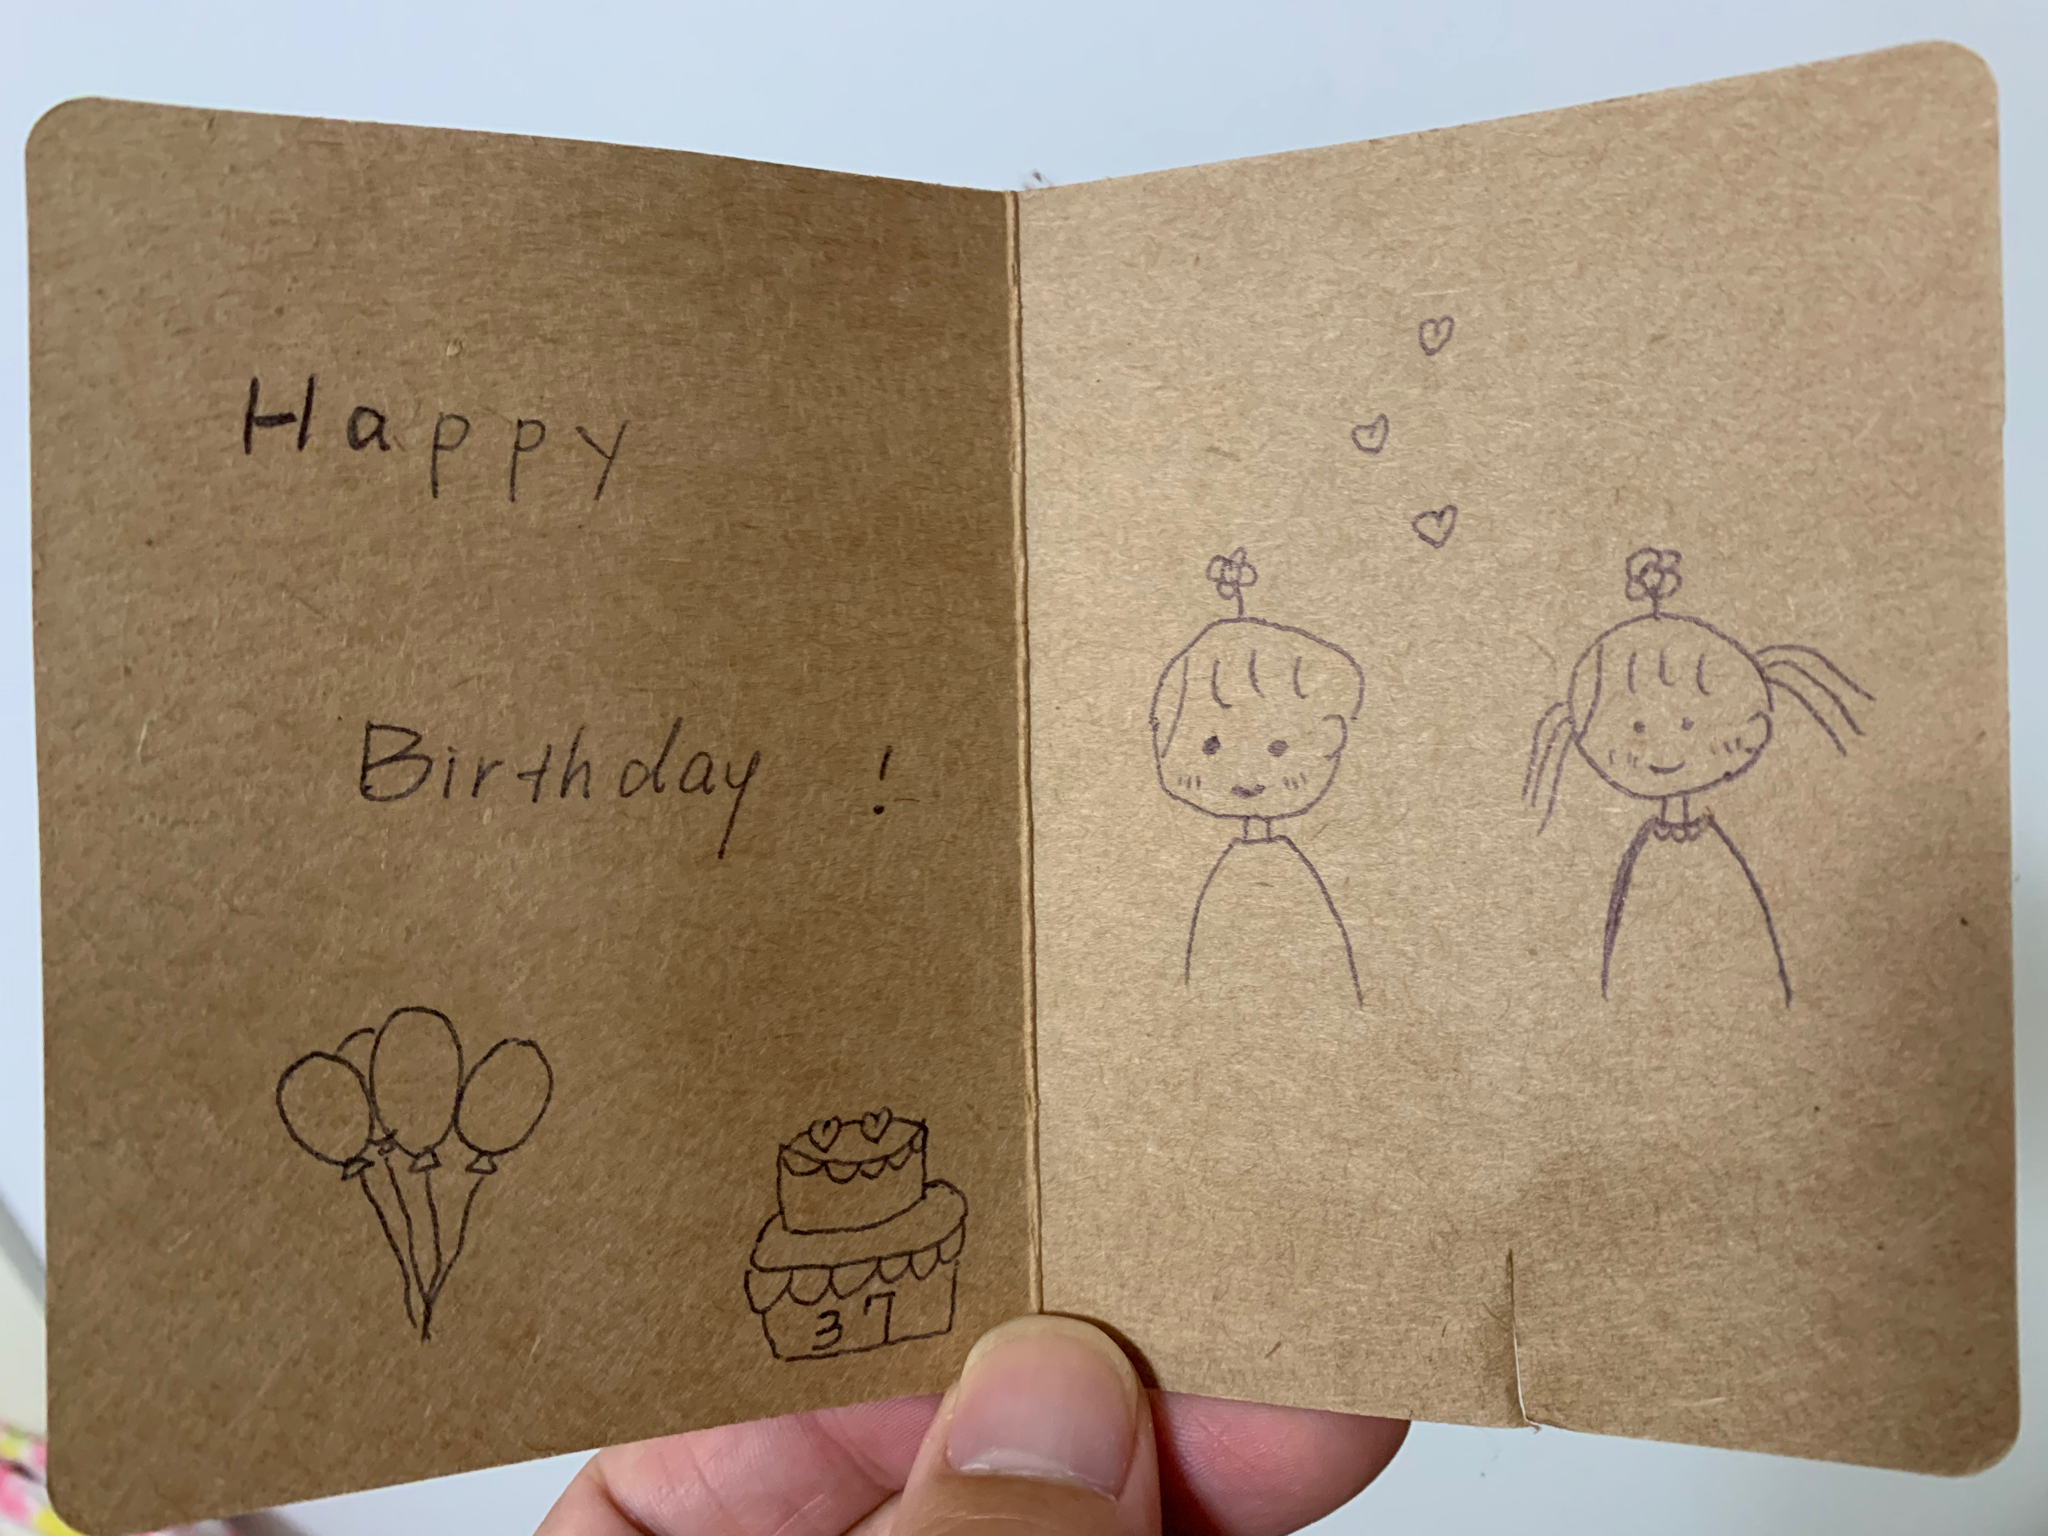 Happy
Birthday !
37